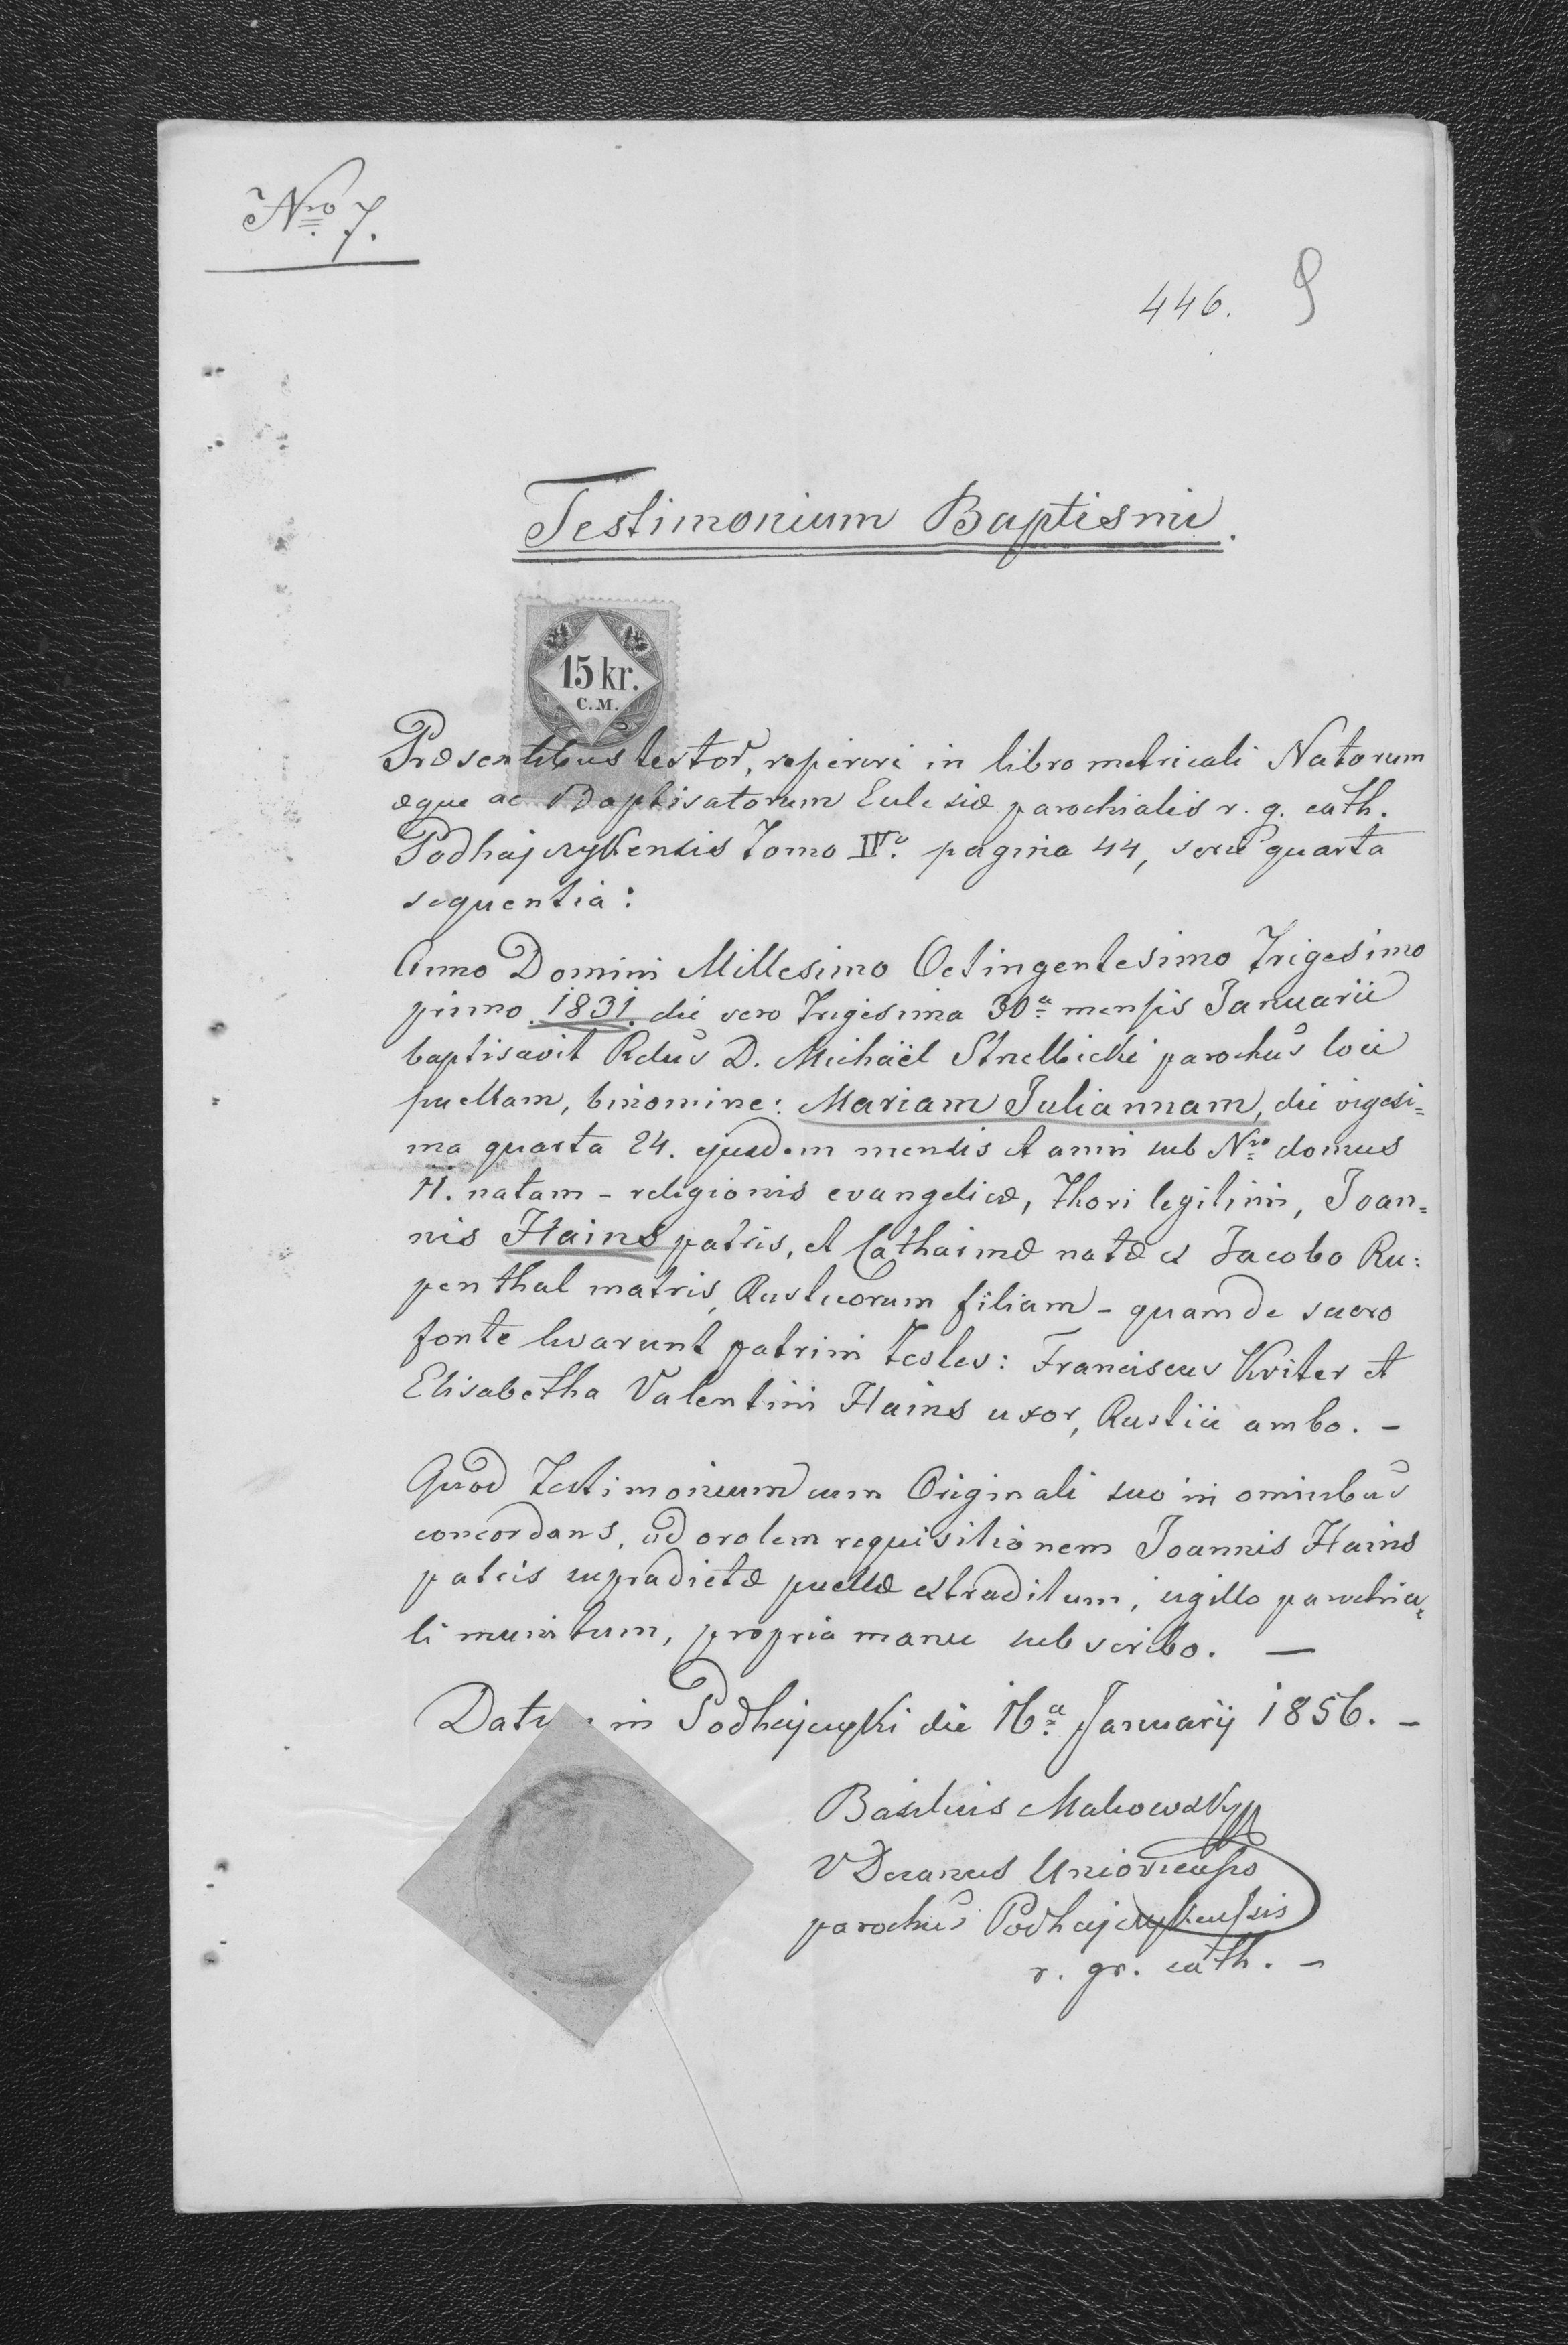 Nro 7.
446. 9
Testimonium Baptismi.
15 kr.
C.M.
Præsentibus testor, reperiri in libro metricali Natorum
æque ac Baptisatorum Ecclesiæ parochialis r. g. cath.
Podhajczykensis Tomo IVo. pagina 44, serie quarta
sequentia:
Anno Domini Millesimo Octingentesimo Trigesimo
primo 1831. die vero Trigesima 30a mensis Januarii
baptisavit Rdus D. Michaël Strelbicki parochus loci
puellam, binomine: Mariam Juliannam, die vigesi=
ma quarta 24. ejusdem mensis et anni sub Nro domus
11. natam - religionis evangelicæ, thori legitimi, Joan=
nis Hains patris, et Catharinæ natæ ex Jacobo Ru=
penthal matris, Rusticorum filiam - quam de sacro
fonte levarunt patrini testes: Franciscus Kriter et
Elisabetha Valentini Hains uxor, Rustici ambo. -
Quod Testimonium cum Originali suo in omnibus
concordans, ad oralem requisitionem Joannis Hains
patris supradictæ puellæ extraditum, sigillo parochia=
li munitum, propria manu subscribo. —
Datum in Podhajczyki die 16a January 1856. -
Basilius Makowsky
VDecanus
parochus Podhajczykensis
r. gr. cath. -